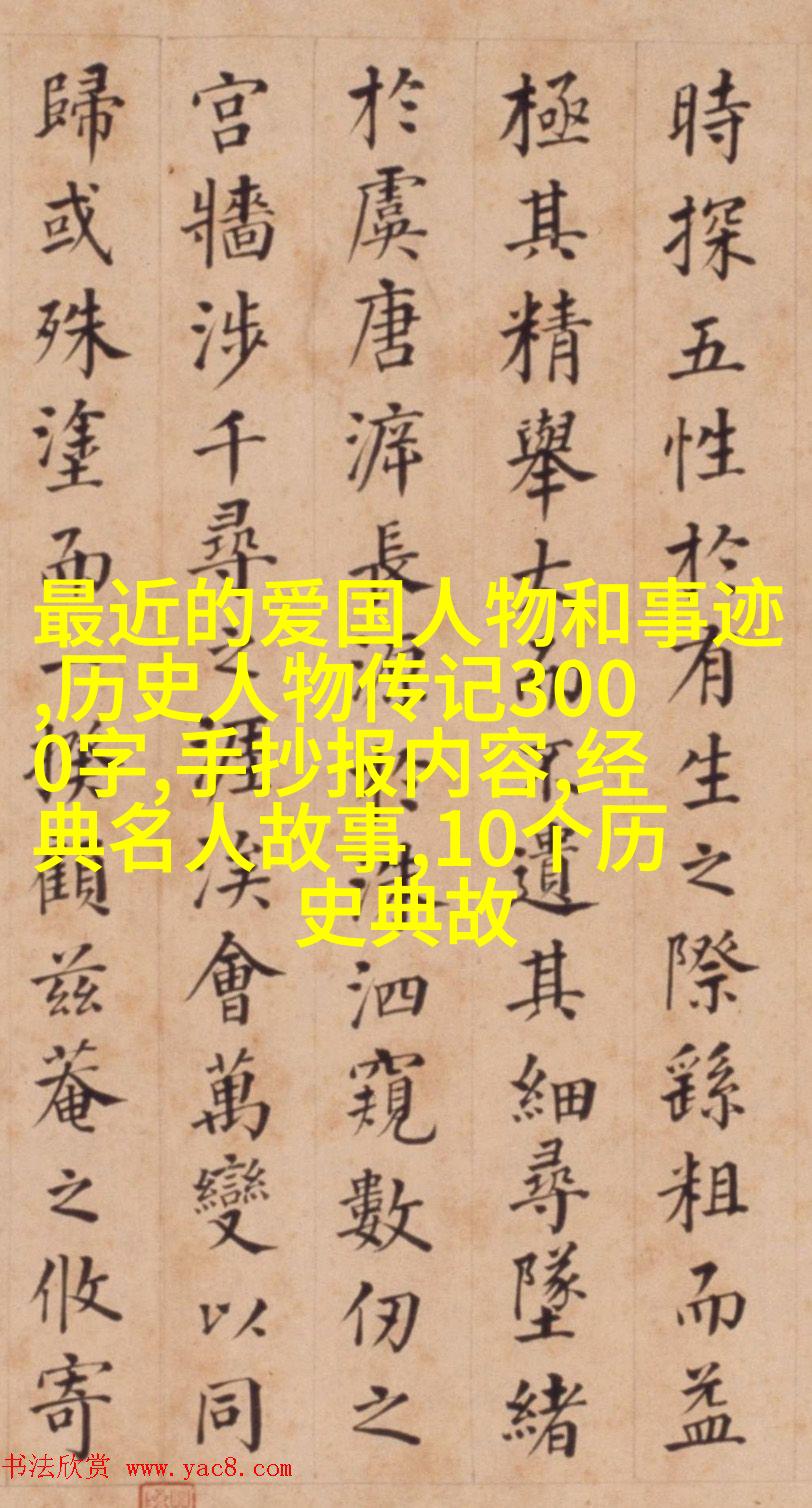 時探五性於有生之際繇粗而益
極其精舉大而不遺其細尋墜緒
於虞唐長於洙泗窺數仞之
宮牆涉千尋之涯涘會萬變以同
歸或殊塗而一揆顧兹菴之攸寄
最近的爱国人物和事迹
,历史人物传记300
0字,手抄报内容,经
典名人故事,10个历
史典故
书法欣赏 www.yac8.com